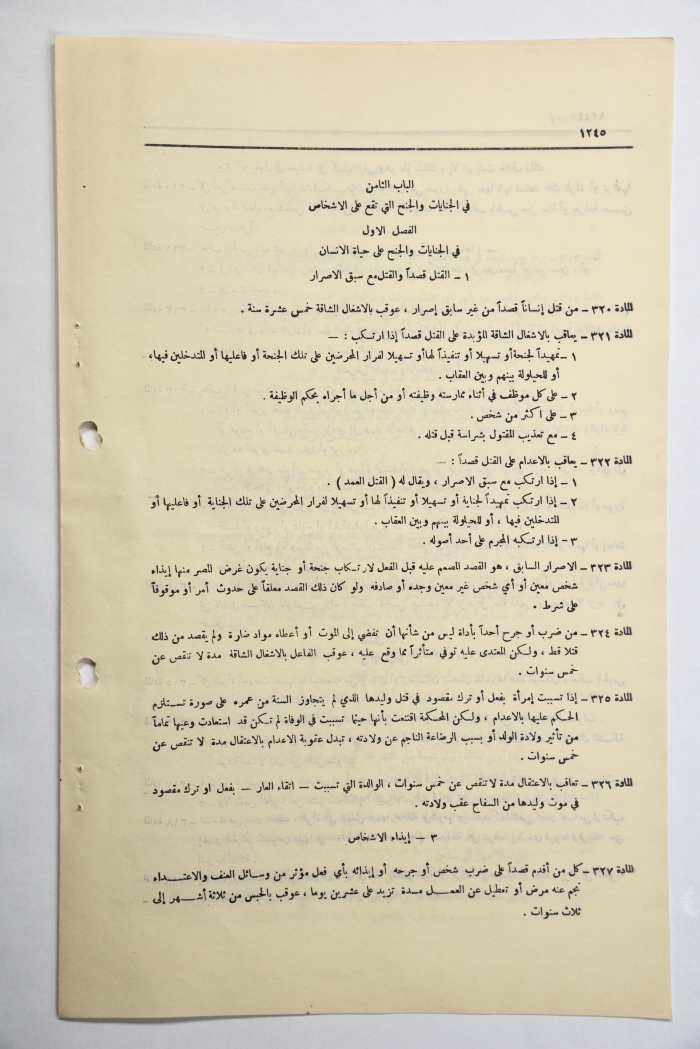 ١٢٤٥
الباب الثامن
في الجنايات والجنح التي تقع على الاشخاص
الفصل الاول
في الجنايات والجنح على حياة الانسان
١ – القتل قصداً والقتل مع سبق الاصرار
المادة ٣٢٠ – من قتل إنساناً قصداً من غير سابق إصرار ، عوقب بالاشغال الشاقة خمس عشرة سنة .
المادة ٣٢١ – يعاقب بالاشغال الشاقة المؤبدة على القتل قصداً إذا ارتكب : —
١ – تمهيداً لجنحة أو تسهيلا أو تنفيذاً لها أو تسهيلا لفرار المحرضين على تلك الجنحة أو فاعليها أو المتدخلين فيها،
أو للحيلولة بينهم وبين العقاب .
٢ – على كل موظف في أثناء ممارسته وظيفته أو من أجل ما أجراه بحكم الوظيفة .
٣ – على اكثر من شخص .
٤ – مع تعذيب المقتول بشراسة قبل قتله .
المادة ٣٢٢ – يعاقب بالاعدام على القتل قصداً : —
١ – إذا ارتكب مع سبق الاصرار ، ويقال له ( القتل العمد ) .
٢ – إذا ارتكب تمهيداً لجناية أو تسهيلا أو تنفيذاً لها أو تسهيلا لفرار المحرضين على تلك الجناية أو فاعليها أو
المتدخلين فيها ، أو للحيلولة بينهم وبين العقاب .
٣ – إذا ارتكبه المجرم على أحد أصوله .
المادة ٣٢٣ – الاصرار السابق ، هو القصد المصمم عليه قبل الفعل لارتكاب جنحة أو جناية يكون غرض المصر منها إيذاء
شخص معين أو أي شخص غير معين وجده أو صادفه ولو كان ذلك القصد معلقاً على حدوث أمر أو موقوفاً
على شرط .
المادة ٣٢٤ – من ضرب أو جرح أحداً بأداة ليس من شأنها أن تفضي إلى الموت أو أعطاه مواد ضارة ولم يقصد من ذلك
قتلا قط ، ولكن المعتدى عليه توفي متأثراً مما وقع عليه ، عوقب الفاعل بالاشغال الشاقة مدة لا تنقص عن
خمس سنوات .
المادة ٣٢٥ – إذا تسببت إمرأة بفعل أو ترك مقصود في قتل وليدها الذي لم يتجاوز السنة من عمره على صورة تستلزم
الحكم عليها بالاعدام ، ولكن المحكمة اقتنعت بأنها حينما تسببت في الوفاة لم تكن قد استعادت وعيها تماماً
من تأثير ولادة الولد أو بسبب الرضاعة الناجم عن ولادته ، تبدل عقوبة الاعدام بالاعتقال مدة لا تنقص عن
خمس سنوات .
المادة ٣٢٦ – تعاقب بالاعتقال مدة لا تنقص عن خمس سنوات ، الوالدة التي تسببت — اتقاء العار — بفعل او ترك مقصود
في موت وليدها من السفاح عقب ولادته .
٣ – إيذاء الاشخاص
المادة ٣٢٧ – كل من أقدم قصداً على ضرب شخص أو جرحه أو إيذائه بأي فعل مؤثر من وسائل العنف والاعتداء
نجم عنه مرض أو تعطيل عن العمل مدة تزيد على عشرين يوما ، عوقب بالحبس من ثلاثة أشهر إلى
ثلاث سنوات .